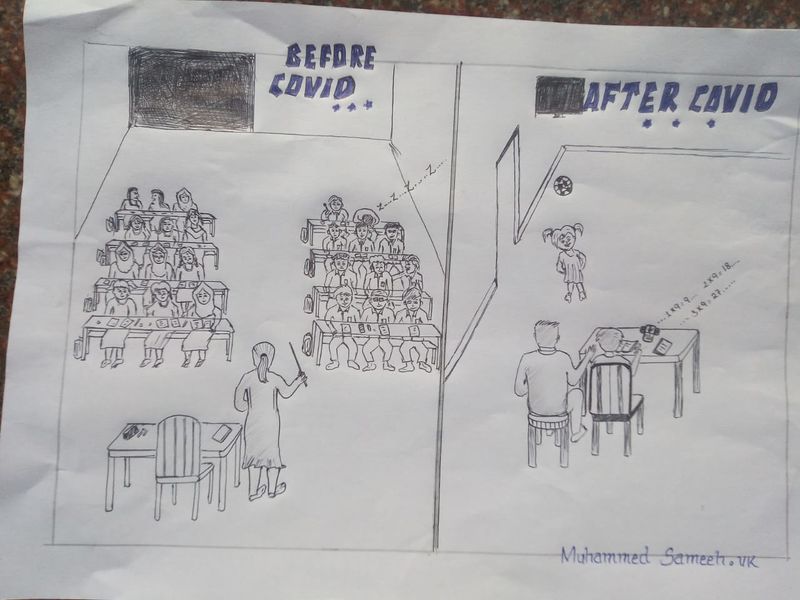 BEFORE
COVID...
Z...Z...Z...Z...Z....
AFTER COVID
...
1x9=9...
2x9=18....
3x9=27.....
Muhammed Sameeh.VK